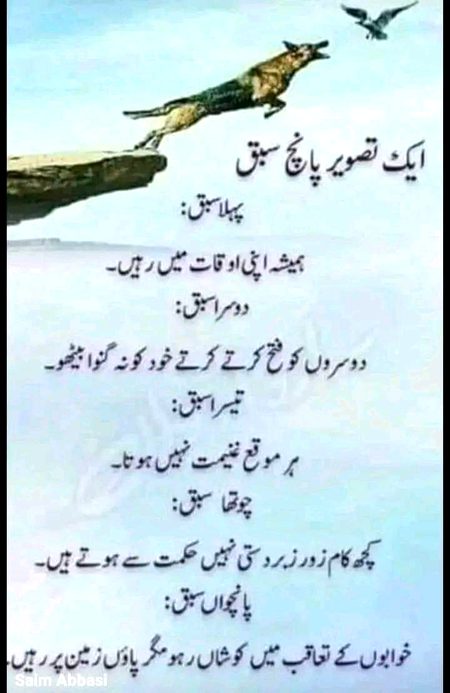 ایک تصویر پانچ سبق
پہلا سبق:
ہمیشہ اپنی اوقات میں رہیں۔
دوسرا سبق:
دوسروں کو فتح کرتے کرتے خود کو نہ گنوا بیٹھو۔
تیسرا سبق:
ہر موقع غنیمت نہیں ہوتا۔
چوتھا سبق:
کچھ کام زور زبردستی نہیں حکمت سے ہوتے ہیں۔
پانچواں سبق:
خوابوں کے تعاقب میں کوشاں رہو مگر پاؤں زمین پر رہیں۔
Saim Abbasi